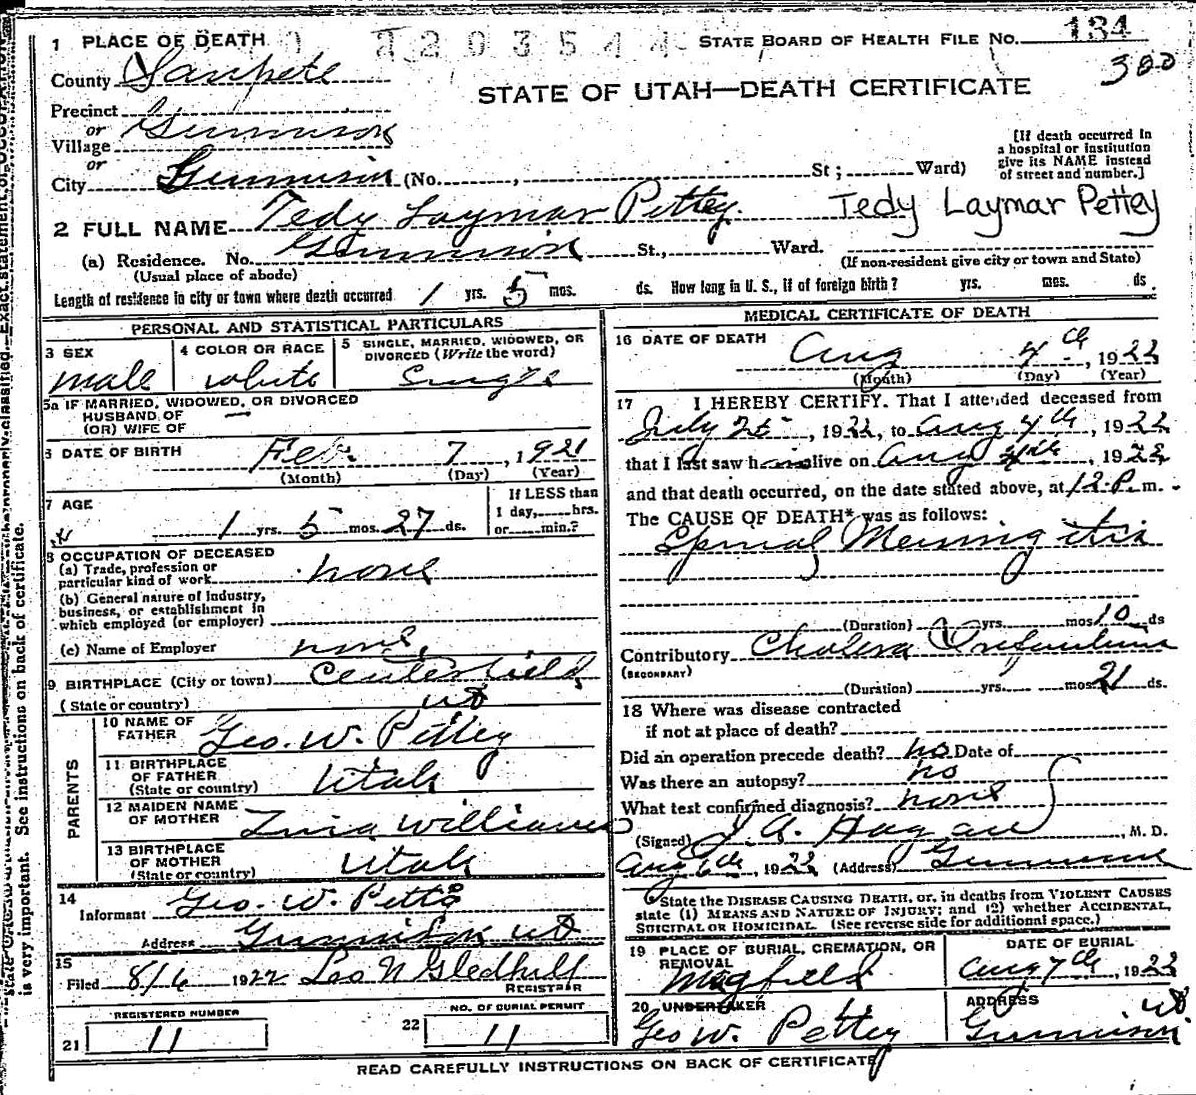 1 PLACE OF DEATH
STATE BOARD OF HEALTH FILE NO. 134
County Sanpete
300
STATE OF UTAH—DEATH CERTIFICATE
Precinct
or
Village Gunnison
or
City Gunnison (No. , St; Ward)
[If death occurred in a hospital or institution give its NAME instead of street and number.]
2 FULL NAME Tedy Laymar Pettey Tedy Laymar Pettey
(a) Residence. No. Gunnison St., Ward.
(Usual place of abode) (If non-resident give city or town and State)
Length of residence in city or town where death occurred 1 yrs. 5 mos. ds. How long in U. S., if of foreign birth? yrs. mos. ds.
PERSONAL AND STATISTICAL PARTICULARS
3 SEX male
4 COLOR OR RACE white
5 SINGLE, MARRIED, WIDOWED, OR DIVORCED (Write the word) Single
5a IF MARRIED, WIDOWED, OR DIVORCED
HUSBAND OF —
(OR) WIFE OF
6 DATE OF BIRTH Feb. 7, 1921
(Month) (Day) (Year)
7 AGE
1 yrs. 5 mos. 27 ds.
If LESS than 1 day, hrs. or min.?
8 OCCUPATION OF DECEASED
(a) Trade, profession or particular kind of work none
(b) General nature of industry, business, or establishment in which employed (or employer)
(c) Name of Employer none
9 BIRTHPLACE (City or town) Centerfield
(State or country) ut
PARENTS
10 NAME OF FATHER Geo. W. Pettey
11 BIRTHPLACE OF FATHER (State or country) Utah
12 MAIDEN NAME OF MOTHER Williams
13 BIRTHPLACE OF MOTHER (State or country) Utah
14
Informant Geo. W. Petty
Address Gunnison ut
15
Filed 8/6 1922 Leo N Gledhill
REGISTRAR
REGISTERED NUMBER
21 11
NO. OF BURIAL PERMIT
22 11
MEDICAL CERTIFICATE OF DEATH
16 DATE OF DEATH Aug 4th, 1922
(Month) (Day) (Year)
17 I HEREBY CERTIFY. That I attended deceased from
July 25, 1922, to Aug 4th, 1922
that I last saw him alive on Aug 4th, 1922
and that death occurred, on the date stated above, at 12 P. m.
The CAUSE OF DEATH* was as follows:
Spinal Meningitis
(Duration) yrs. mos 10 ds
Contributory Cholera Infantum
(SECONDARY)
(Duration) yrs. mos. 21 ds.
18 Where was disease contracted
if not at place of death?
Did an operation precede death? no Date of
Was there an autopsy? no
What test confirmed diagnosis? none
(Signed) J. A. Hagan, M. D.
Aug 6th, 1922 (Address) Gunnison
State the DISEASE CAUSING DEATH, or, in deaths from VIOLENT CAUSES
state (1) MEANS AND NATURE OF INJURY; and (2) whether ACCIDENTAL,
SUICIDAL OR HOMICIDAL. (See reverse side for additional space.)
19 PLACE OF BURIAL, CREMATION, OR REMOVAL Mayfield
DATE OF BURIAL Aug 7th, 1922
20 UNDERTAKER Geo W. Pettey
ADDRESS Gunnison ut
READ CAREFULLY INSTRUCTIONS ON BACK OF CERTIFICATE
is very important. See instructions on back of certificate.